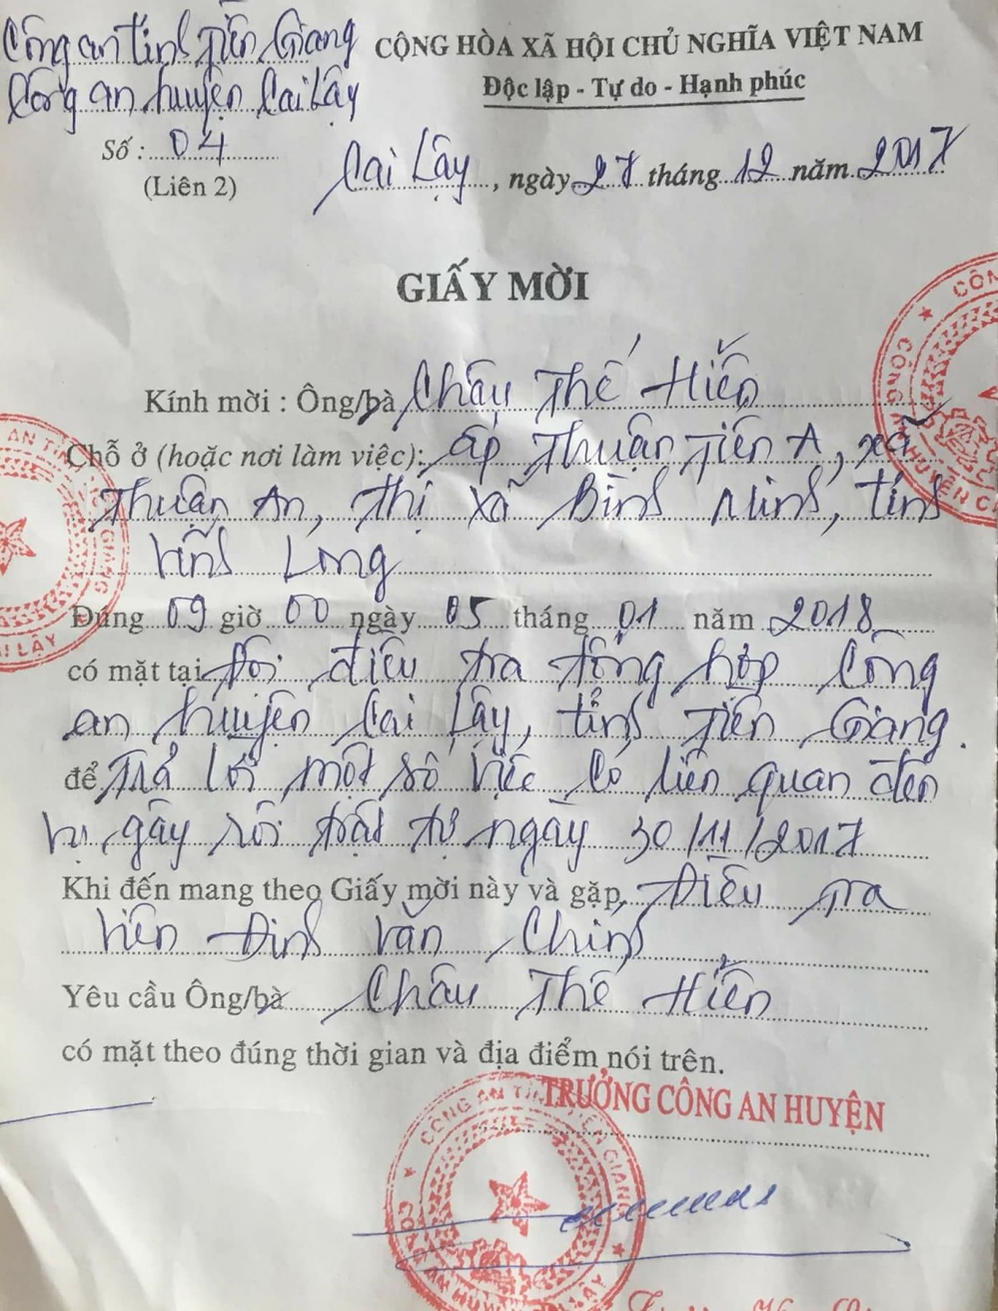 Công an tỉnh Tiền Giang
CỘNG HÒA XÃ HỘI CHỦ NGHĨA VIỆT NAM
Công an huyện Cai Lậy
Độc lập - Tự do - Hạnh phúc
Số : 04
(Liên 2)
Cai Lậy, ngày 27 tháng 12 năm 2017
GIẤY MỜI
Kính mời : Ông/bà Châu Thế Hiển
Chỗ ở (hoặc nơi làm việc): ấp Thuận Tiến A, xã
Thuận An, thị xã Bình Minh, tỉnh
Vĩnh Long
Đúng 09 giờ 00 ngày 05 tháng 01 năm 2018
có mặt tại Đội điều tra tổng hợp Công
an huyện Cai Lậy, tỉnh Tiền Giang.
để Trả lời một số việc có liên quan đến
vụ gây rối trật tự ngày 30/11/2017
Khi đến mang theo Giấy mời này và gặp, Điều tra
viên Đinh Văn Chính
Yêu cầu Ông/bà Châu Thế Hiển
có mặt theo đúng thời gian và địa điểm nói trên.
TRƯỞNG CÔNG AN HUYỆN